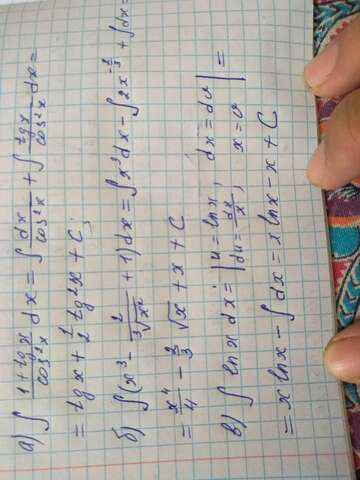 а) ∫ (1+tgx)/cos²x dx = ∫ dx/cos²x + ∫ tgx/cos²x dx =
= tgx + 1/2 tg²x + C;
б) ∫(x³ - 2/∛x² + 1) dx = ∫x³dx - ∫2x^(-2/3) + ∫dx =
= x⁴/4 - 2/3 √x + x + C
в) ∫ lnx dx = | u = lnx, dx = dv
du = dx/x, x = v | =
= x lnx - ∫dx = x lnx - x + C